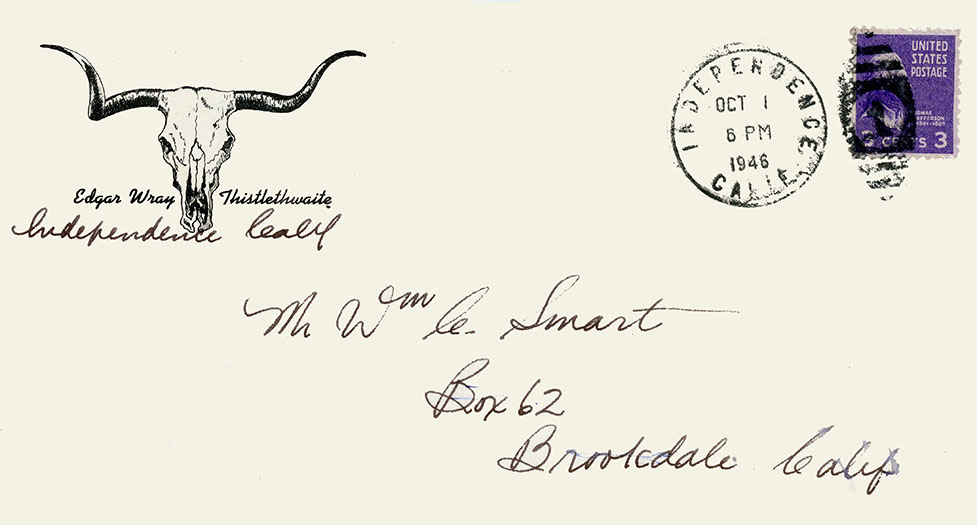 Edgar Wray Thistlethwaite
Independence Calif
INDEPENDENCE
OCT 1
6 PM
1946
CALIF.
UNITED
STATES
POSTAGE
THOMAS
JEFFERSON
1801-1809
3 CENTS 3
Mr Wm C. Smart
Box 62
Brookdale Calif